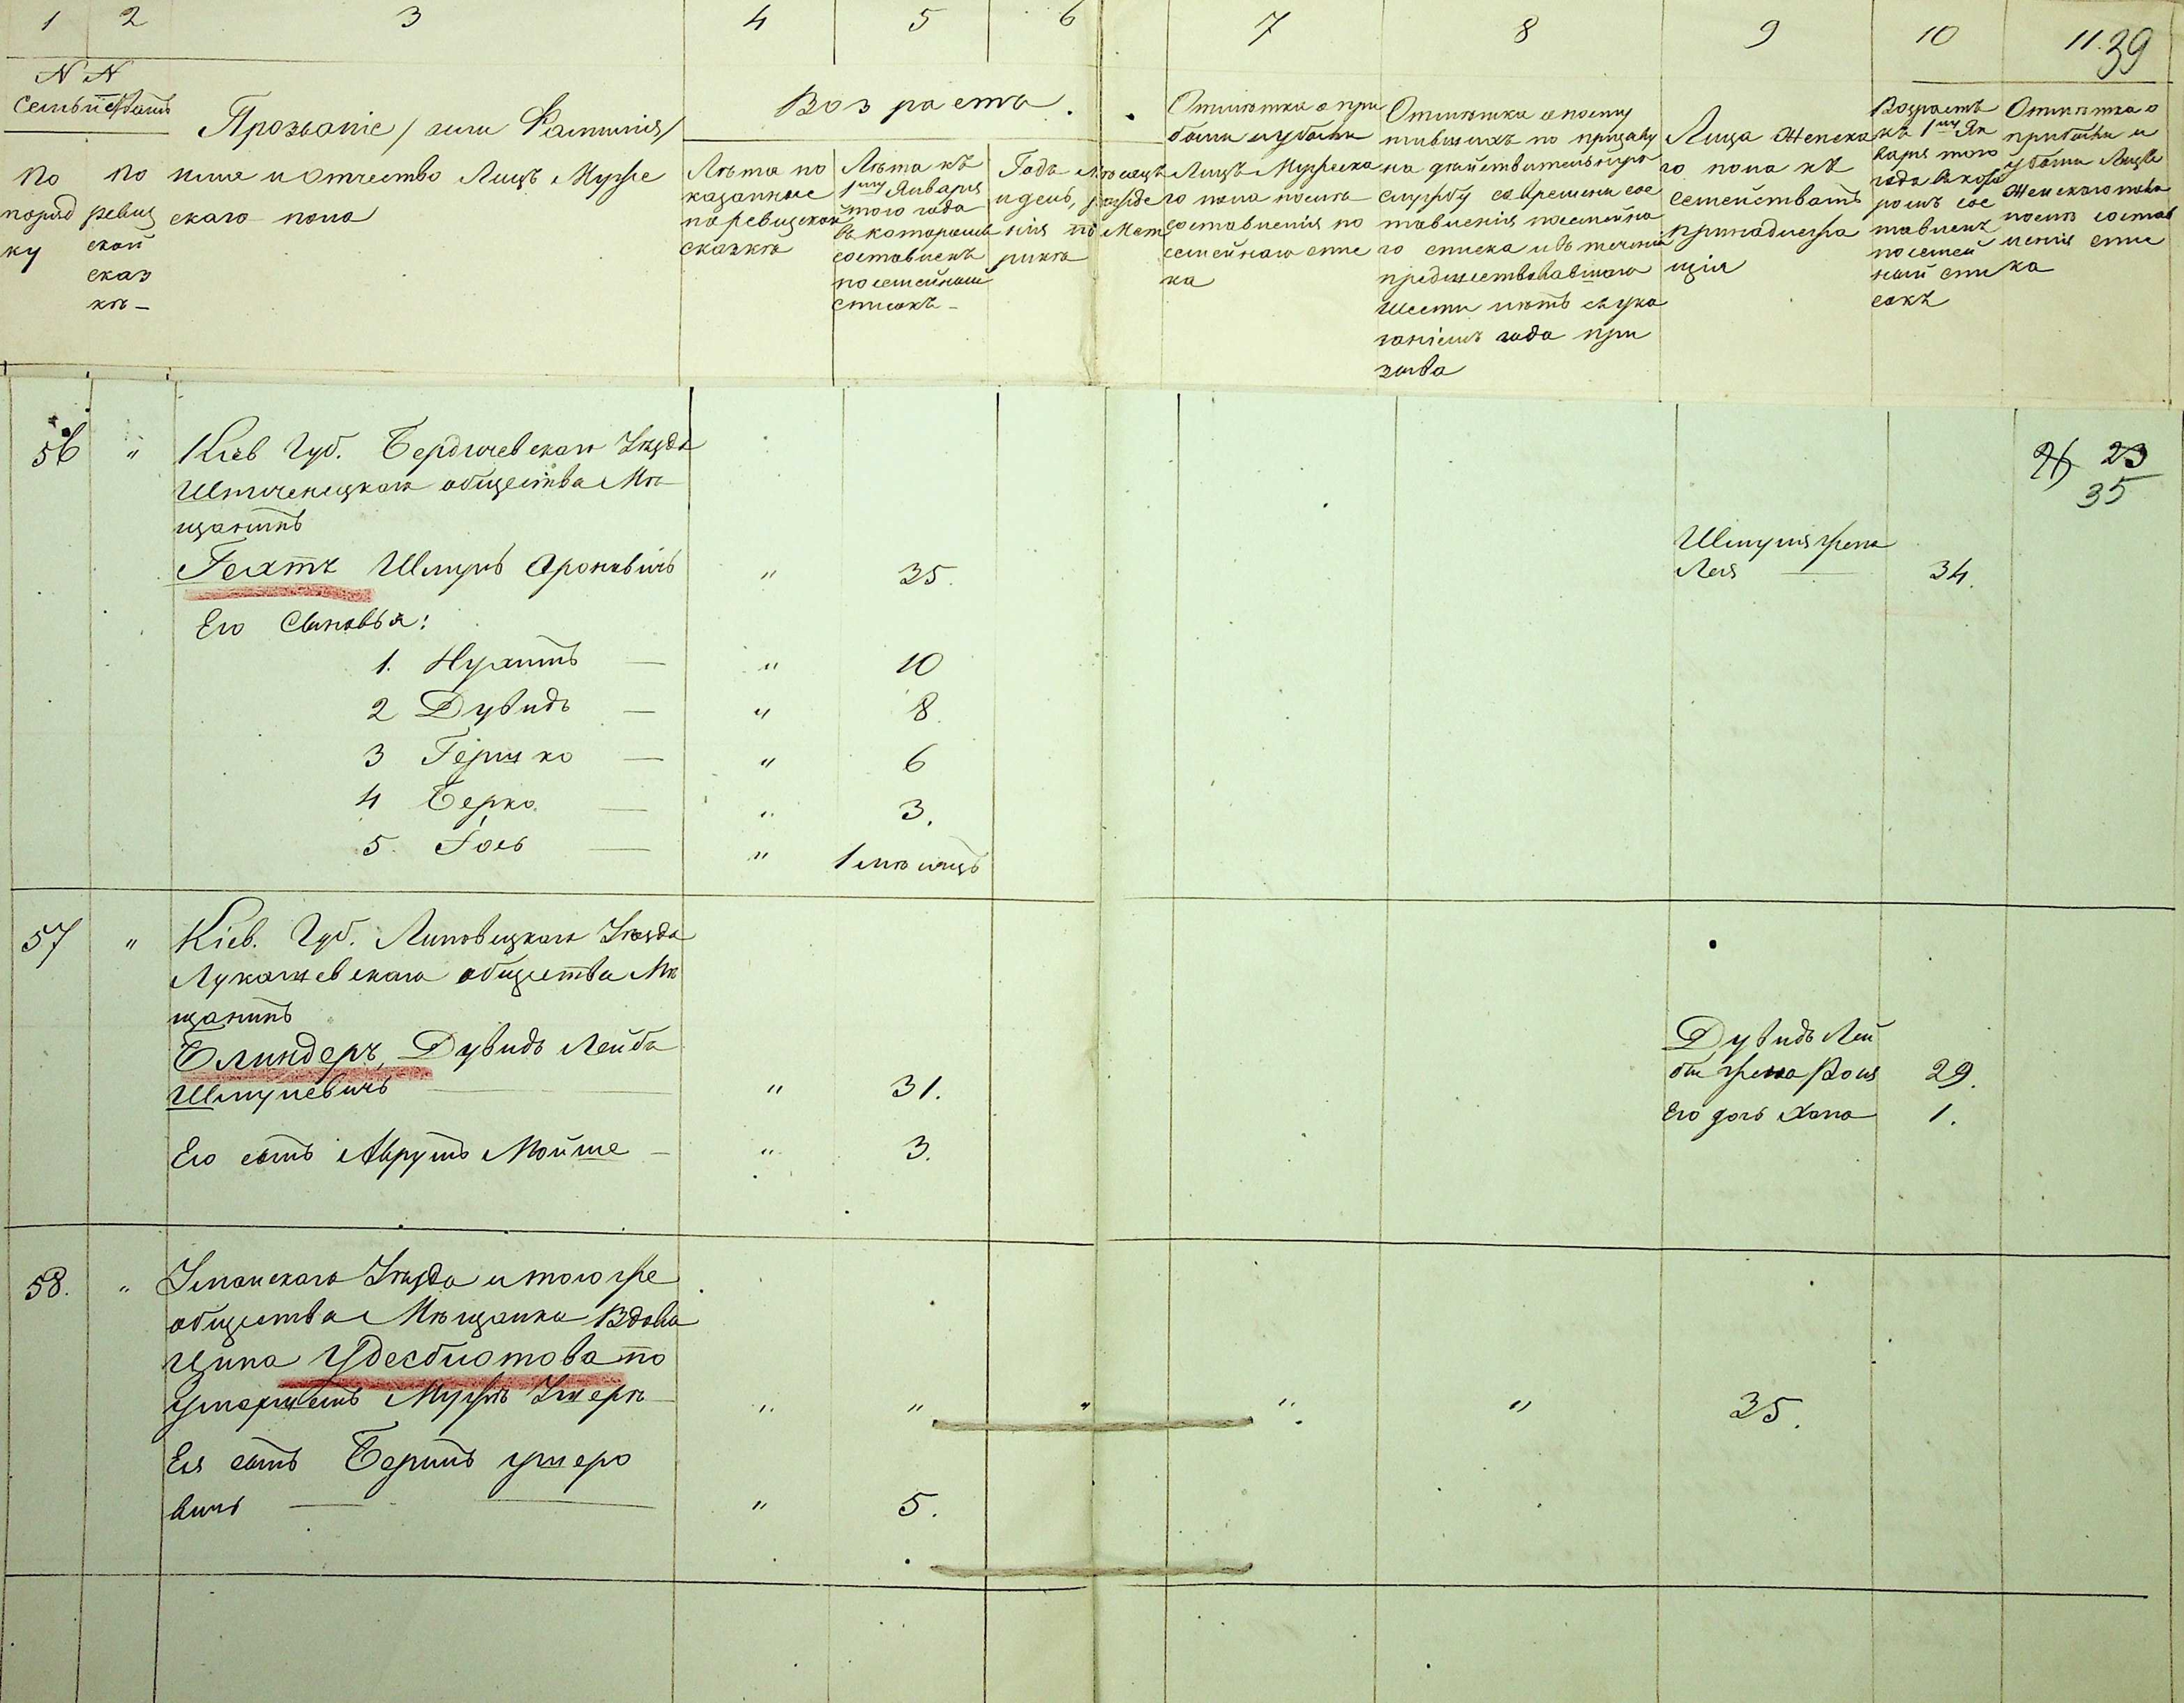 1 2 3 4 5 6 7 8 9 10 11. 39
N N
Семействамъ
По порядку
По ревизской сказкѣ
Прозваніе /или Фамилія/
имя и отчество Лицъ Мужескаго пола
Возрастъ.
Лѣта показанные по ревизской сказкѣ
Лѣта къ 1му Января того года въ которомъ составленъ посемейный списокъ
Годъ мѣсяцъ и день, рожденія по Метрикѣ
Отмѣтка о прибыли и убыли Лицъ Мужескаго пола послѣ составленія посемейнаго списка
Отмѣтка о поступившихъ по призыву на дѣйствительную службу со времени составленія посемейнаго списка и въ теченіи предшествовавшаго шести лѣтъ съ указаніемъ года призыва
Лица Женскаго пола къ семействамъ принадлежащія
Возрастъ къ 1му Января того года въ которомъ составленъ посемейный списокъ
Отмѣтка о прибыли и убыли Лицъ Женскаго пола послѣ составленія списка
56 " Кіев Губ. Бердичевскаго Уѣзда
общества Мѣ-
щанинъ
23
35
Шмуль Ароновичъ " 35.
Шмуля жена
Лея — 34.
Его Сыновья:
1. Нухимъ — " 10
2 Дувидъ — " 8.
3 Гершко — " 6
4 Берко — " 3.
5. Іось — " 1 мѣсяцъ
57 " Кіев. Губ. Липовецкаго Уѣзда
Лукашевскаго общества Мѣ
щанинъ
Блиндеръ, Дувидъ Лейба
Шмулевичъ — " 31.
Дувидъ Лей
бы жена 29.
Его дочь Хана 1.
Его сынъ Аврумъ Мойше — " 3.
58. " Уманскаго Уѣзда и того же
общества Мѣщанка Вдова
Ципа по
Умершемъ Мужѣ " " " " " 35.
Ея сынъ
вичъ — " 5.